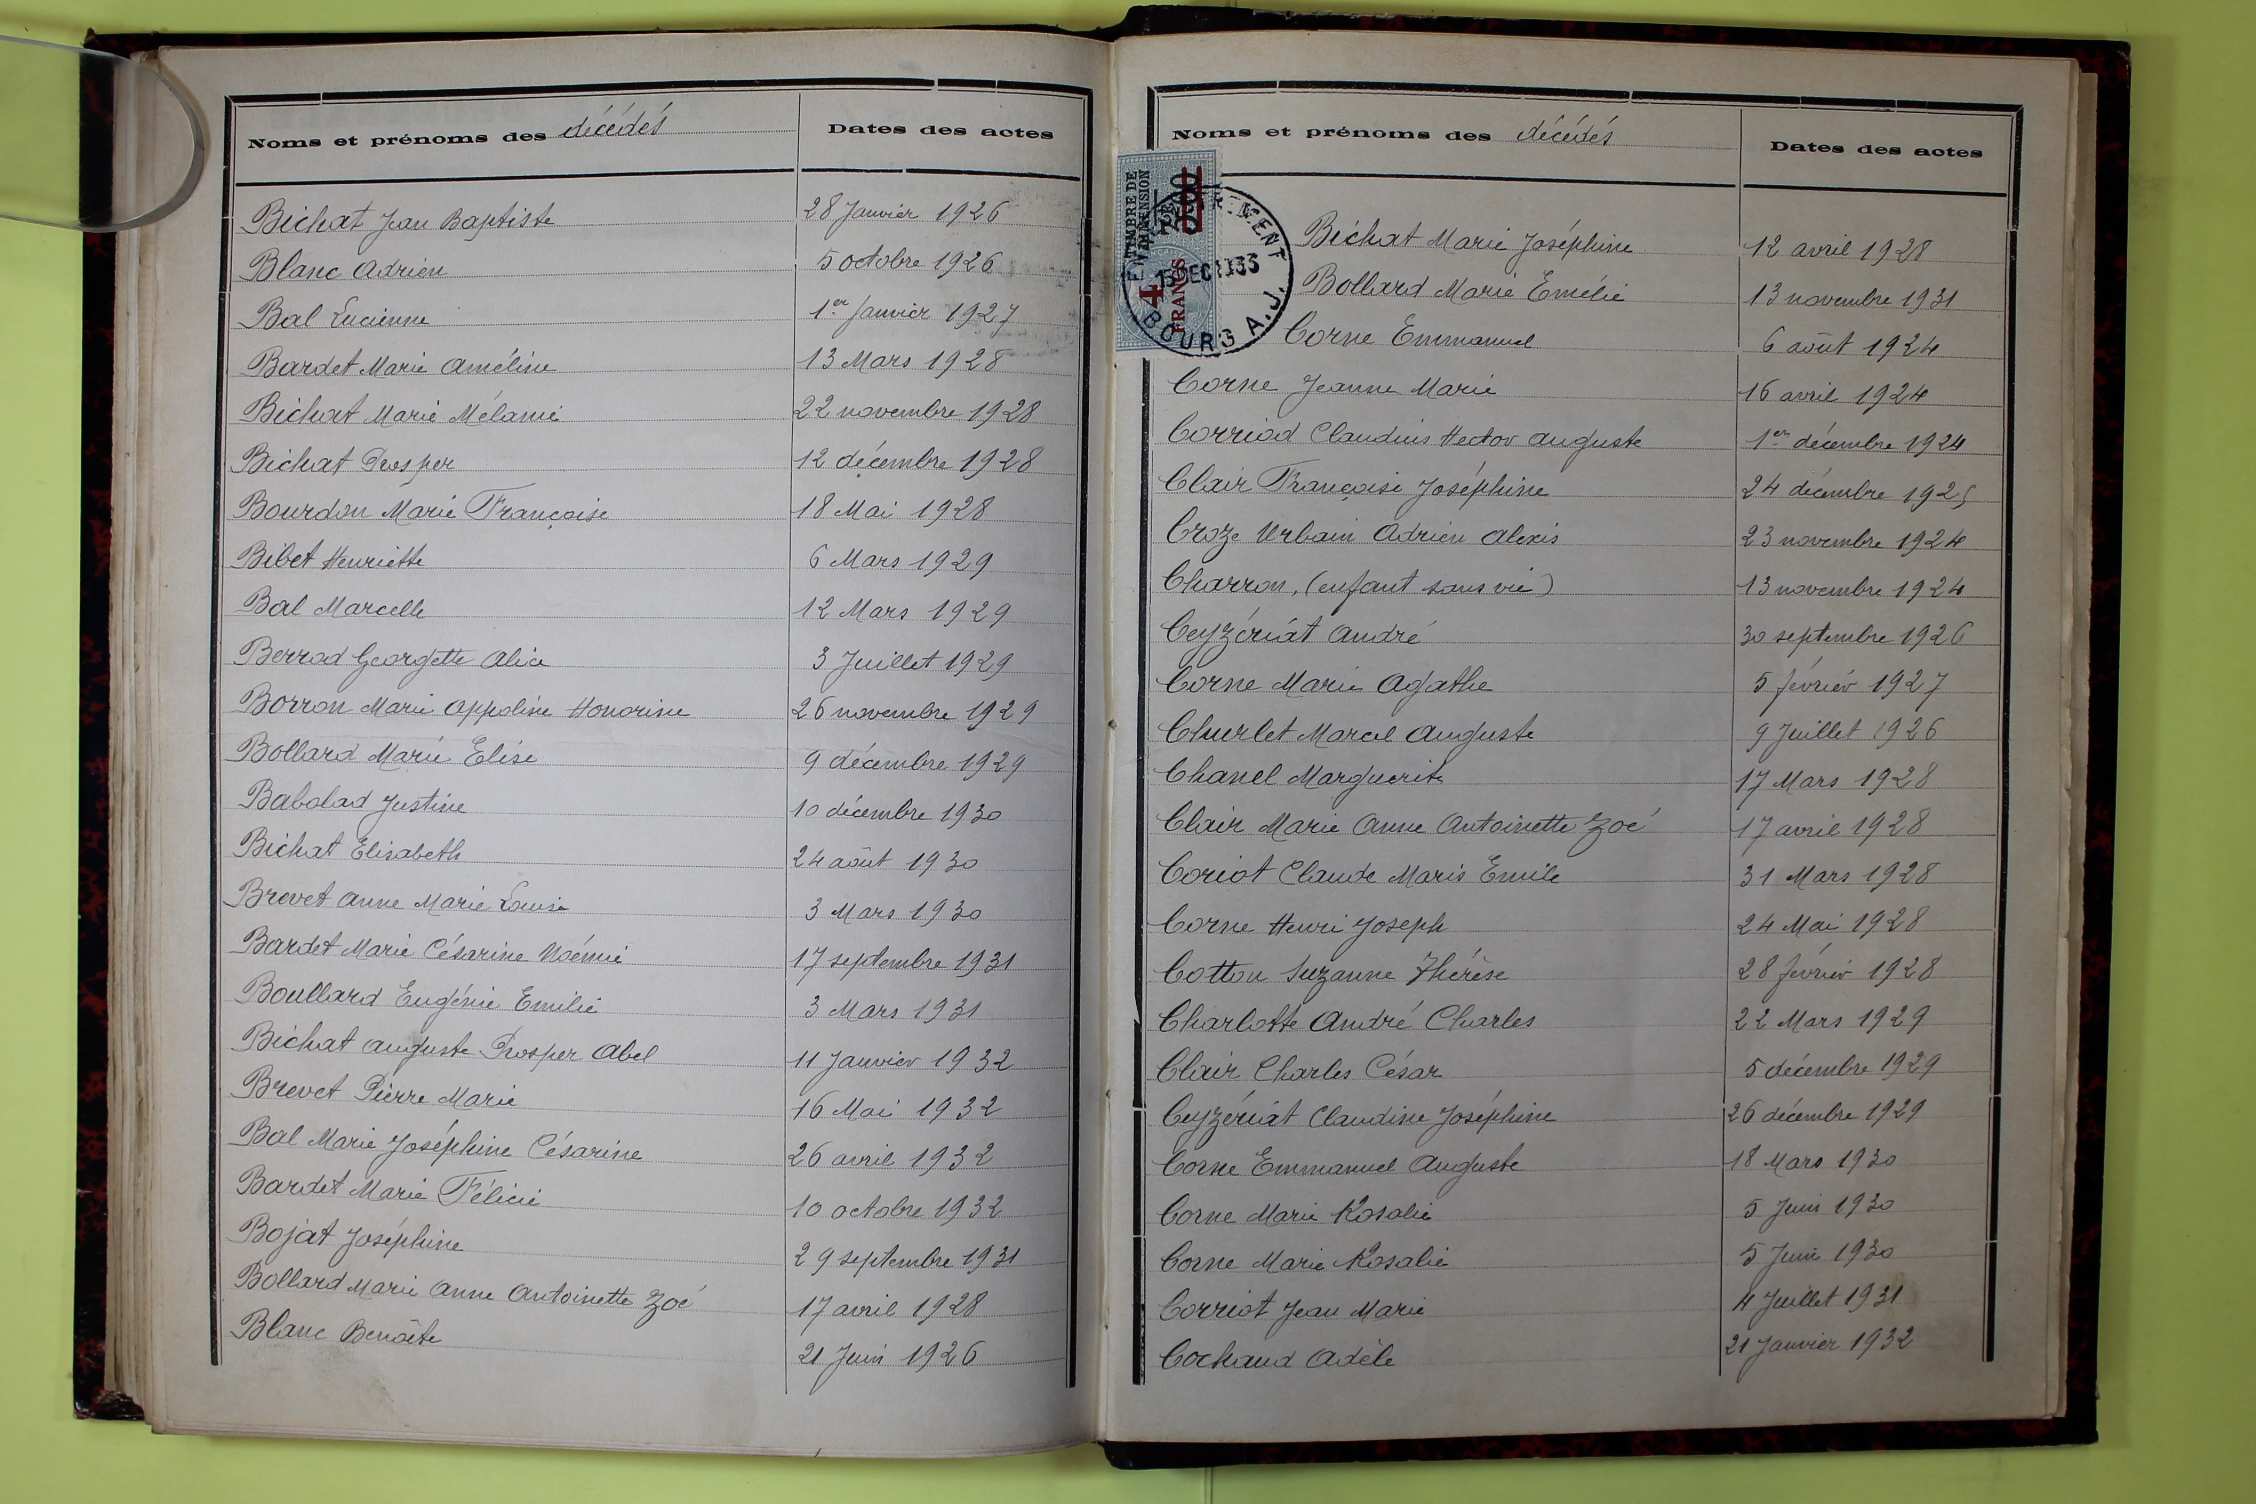 Noms et prénoms des décédés Dates des actes
Bichat Jean Baptiste 28 Janvier 1926
Blanc Adrien 5 octobre 1926
Bal Lucienne 1er Janvier 1927
Bardet Marie Améline 13 Mars 1928
Bichat Marie Mélanie 22 novembre 1928
Bichat Prosper 12 décembre 1928
Bourdon Marie Françoise 18 Mai 1928
Bibet Henriette 6 Mars 1929
Bal Marcelle 12 Mars 1929
Berrod Georgette Alice 3 Juillet 1929
Borron Marie Appoline Honorine 26 novembre 1929
Bollard Marie Elise 9 décembre 1929
Babolad Justine 10 décembre 1930
Bichat Elisabeth 24 août 1930
Brevet Anne Marie Louise 3 Mars 1930
Bardet Marie Césarine Noémie 17 septembre 1931
Boullard Eugénie Emilie 3 Mars 1931
Bichat Auguste Prosper Abel 11 Janvier 1932
Brevet Pierre Marie 16 Mai 1932
Bal Marie Joséphine Césarine 26 avril 1932
Bardet Marie Félicie 10 octobre 1932
Bojat Joséphine 29 septembre 1931
Bollard Marie Anne Antoinette Zoé 17 avril 1928
Blanc Benoîte 21 Juin 1926
Noms et prénoms des décédés Dates des actes
TIMBRE DE
DIMENSION
4
FRANCS
15 DEC 1933
BOURG A.J.
Bichat Marie Joséphine 12 avril 1928
Bollard Marie Emélie 13 novembre 1931
Corne Emmanuel 6 août 1924
Corne Jeanne Marie 16 avril 1924
Corriod Claudius Hector Auguste 1er décembre 1924
Clair Françoise Joséphine 24 décembre 1925
Croze Urbain Adrien Alexis 23 novembre 1924
Charron, (enfant sans vie) 13 novembre 1924
Ceyzériat André 30 septembre 1926
Corne Marie Agathe 5 février 1927
Churlet Marcel Auguste 9 Juillet 1926
Chanel Marguerite 17 Mars 1928
Clair Marie Anne Antoinette Zoé 17 avril 1928
Coriot Claude Maris Emile 31 Mars 1928
Corne Henri Joseph 24 Mai 1928
Cotton Suzanne Thérèse 28 février 1928
Charlotte André Charles 22 Mars 1929
Clair Charles César 5 décembre 1929
Ceyzériat Claudine Joséphine 26 décembre 1929
Corne Emmanuel Auguste 18 Mars 1930
Corne Marie Rosalie 5 Juin 1930
Corne Marie Rosalie 5 Juin 1930
Corriot Jean Marie 4 Juillet 1931
Cochaud Adèle 21 Janvier 1932